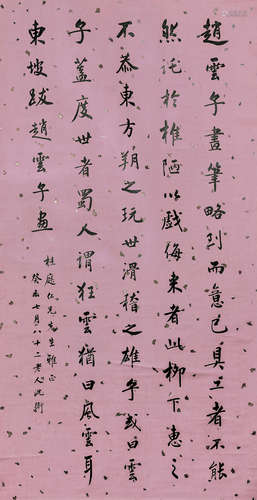 趙雲子畫筆略到而意已具工者不能
然託於椎陋以戲侮來者此柳下惠之
不恭東方朔之玩世滑稽之雄乎或曰雲
子蓋度世者蜀人謂狂雲猶曰風雲耳
東坡跋趙雲子畫
桂庭仁兄先生雅正
癸未七月八十二老人沈衛